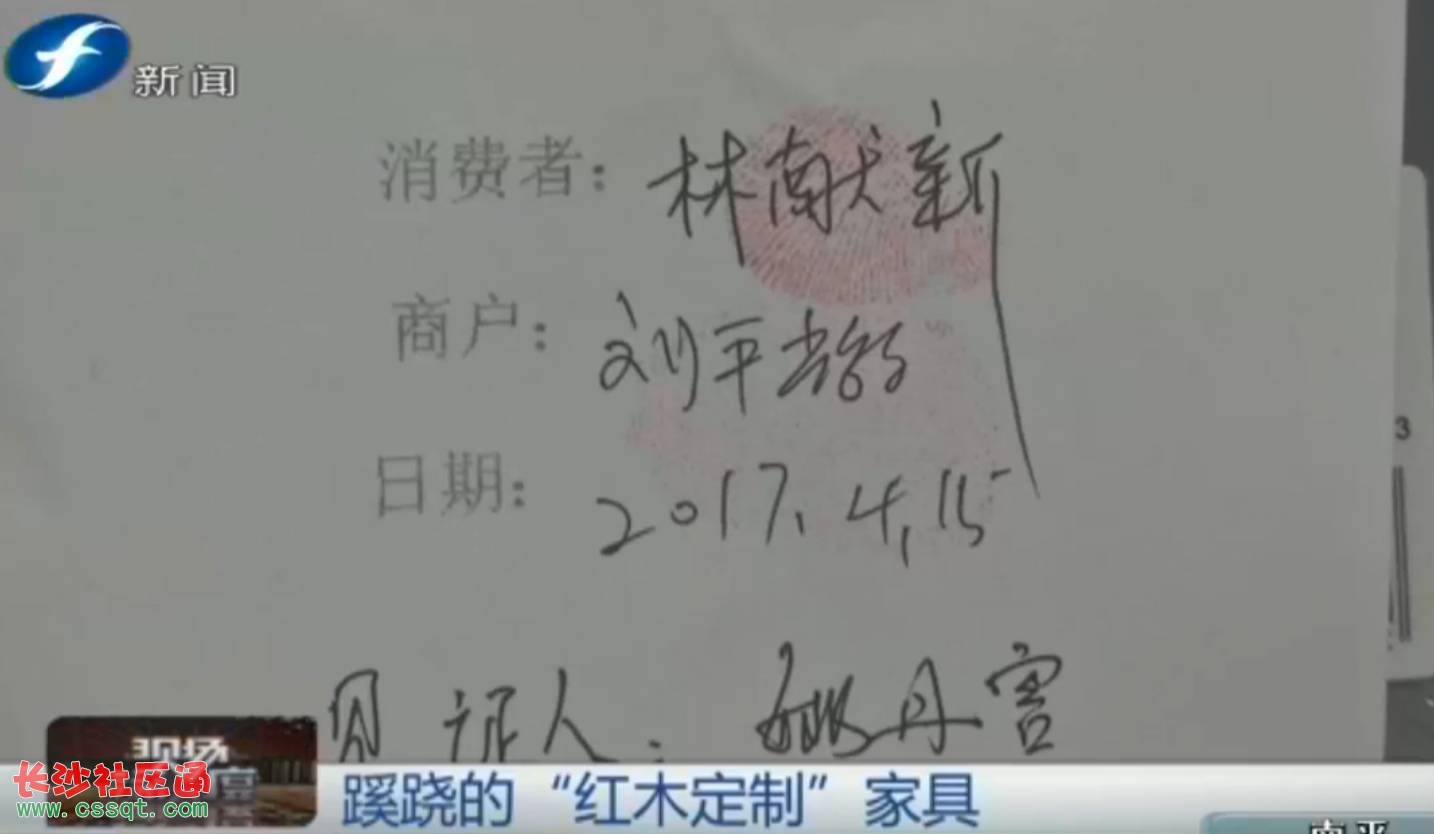 新闻
消费者：林献新
商户：刘平
日期：2017.4.15
3
见证人：姚丹宫
现场
长沙社区通
www.cssqt.com
蹊跷的“红木定制”家具
南平